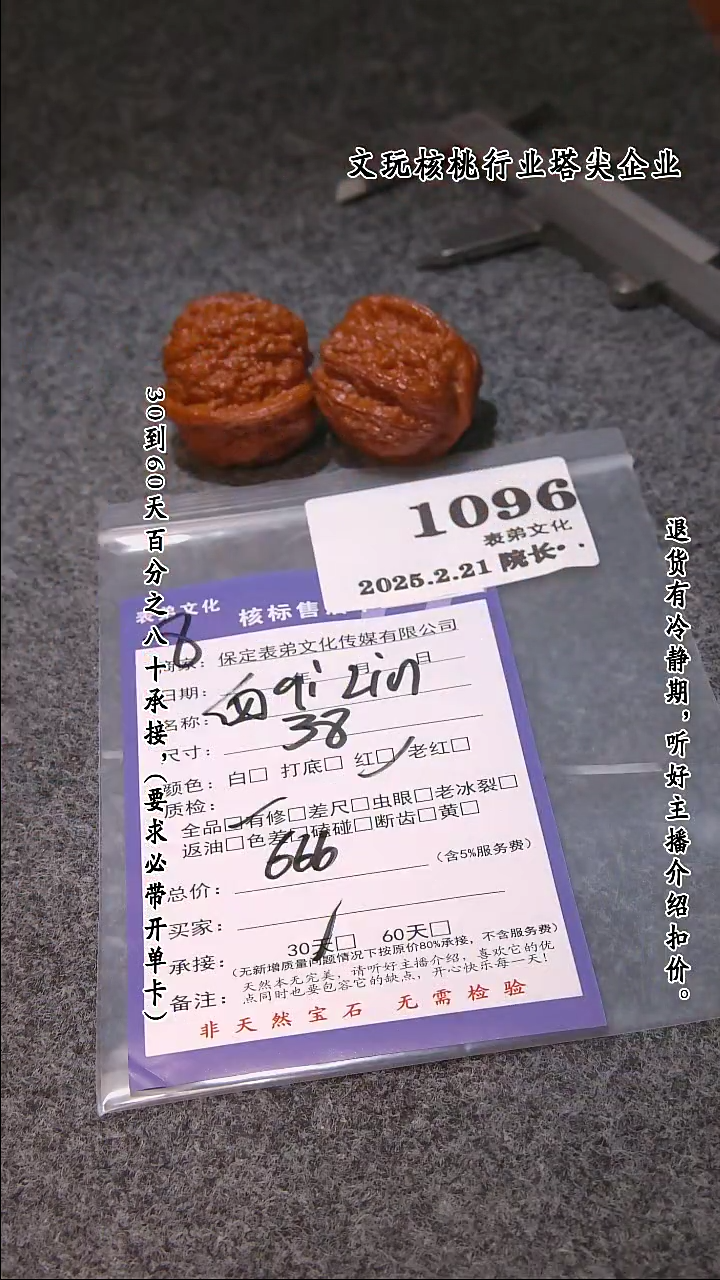 文玩核桃行业塔尖企业
30到60天百分之八十承接，(要求必带开单卡)
退货有冷静期，听好主播介绍扣价。
1096
表弟文化
2025.2.21 院长
表弟文化 核标售
8
保定表弟文化传媒有限公司
日期： 年 月 日
名称： 四qi Lin
尺寸： 38
颜色：白□ 打底□ 红□ 老红□
质检：
全品□有修□差尺□虫眼□老冰裂□
返油□色差□磕碰□断齿□黄□
总价： 666 (含5%服务费)
买家：
承接： 30天□ 60天□
(无新增质量问题情况下按原价80%承接，不含服务费)
备注： 天然本无完美，请听好主播介绍，喜欢它的优
点同时也要包容它的缺点，开心快乐每一天！
非天然宝石 无需检验